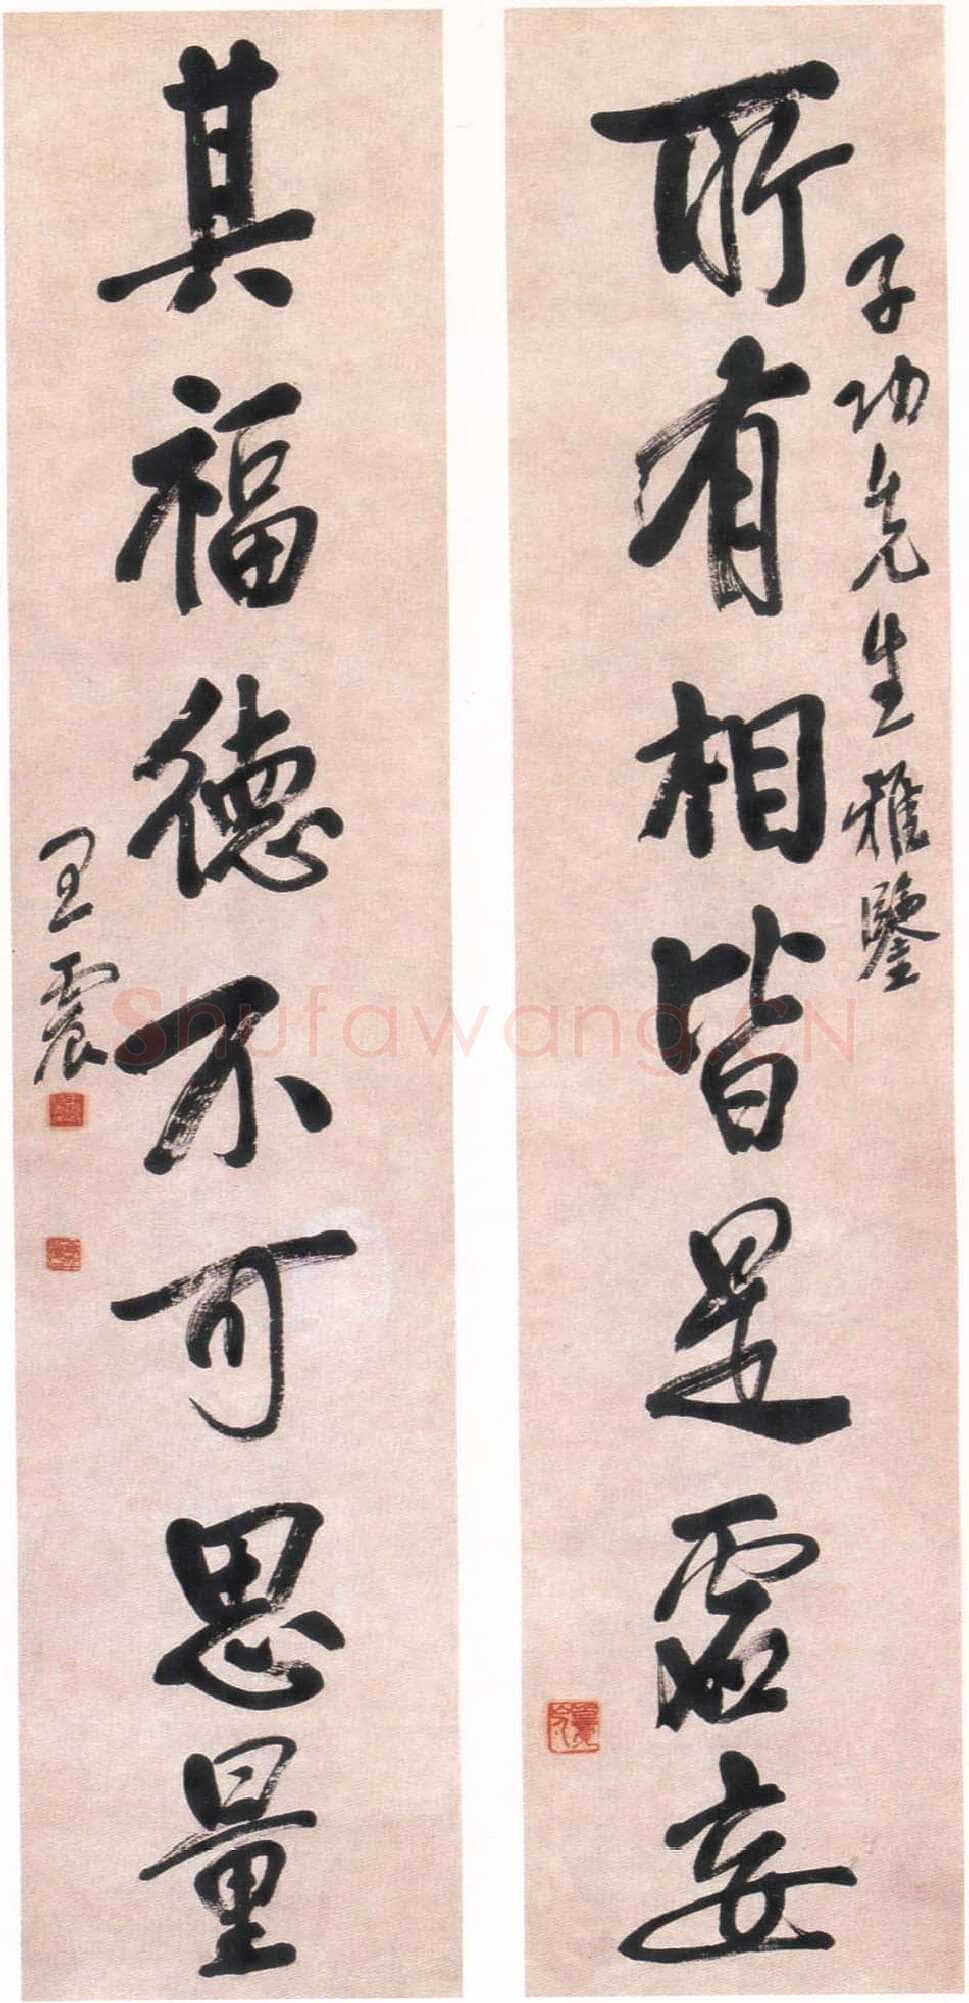 子功先生雅鑒
所有相皆是虛妄
其福德不可思量
王震
Shufawang.CN